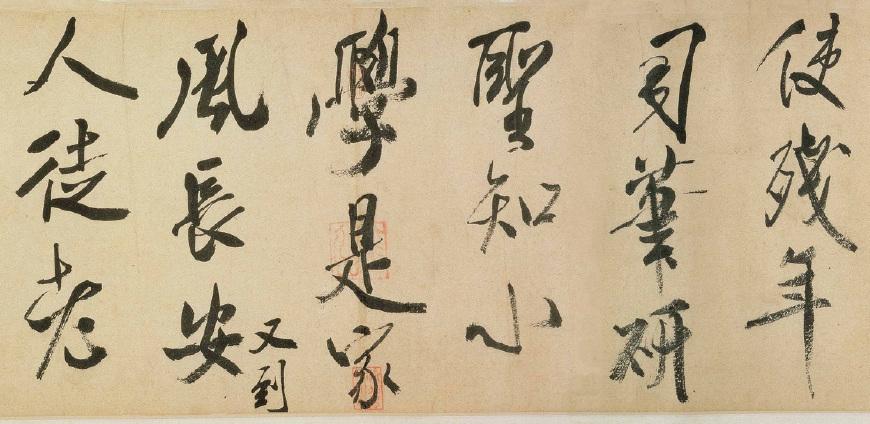 使殘年
司筆研
聖知小
學是家
風長安
又到
人徒老